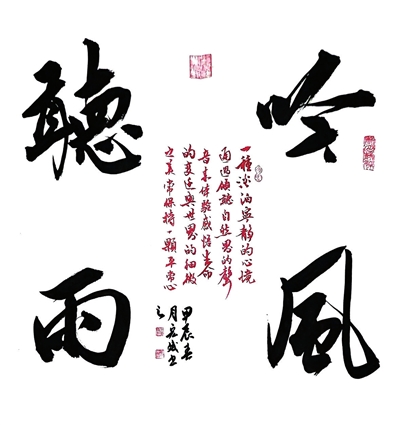 吟風
聽雨
一種淡泊寧静的心境
通過傾聽自然界的聲
音来体驗感悟生命
的变迁與世界的細微
之美常保持一顆平常心
甲辰春
月